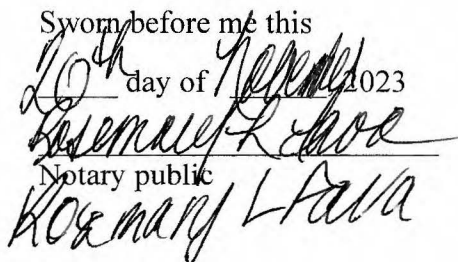 Sworn before me this
20th day of November 2023
Rosemary L Fava
Notary public
Rosemary L Fava